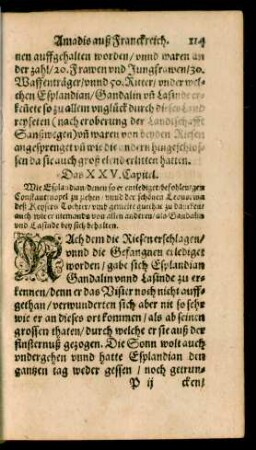 Amadis auß Franckreich. 114
nen auffgehalten worden / vnnd waren an
der zahl / 20. Frawen vnd Jungfrawen / 30.
Waffenträger / vnnd 50. Ritter / vnder wel-
chen Esplandian / Gandalin vñ Lasinde er-
keñete so zu allem vnglück durch dieses Land
reyseten (nach eroberung der Landtschafft
Sanßwegen) vñ waren von beyden Riesen
angesprenget vñ wie die andern hingeschlos-
sen da sie auch groß elend erlitten hatten.
Das XXV. Capitel.
Wie Esplandian denen so er entlediget befohlen gen
Constantinopel zu ziehen / vnd der schönen Leonorina
deß Keysers Tochter
auch wie er niemands von allen anderen / als Gandalin
vnd Lasinde bey sich behalten.
NAch dem die Riesen erschlagen /
vnnd die Gefangnen erlediget
worden / gabe sich Esplandian
Gandalin vnnd Lasinde zu er-
kennen / denn er das Visier noch nicht auff-
gethan / verwunderten sich aber nit so sehr
wie er an dieses ort kommen / als ab seinen
grossen thaten / durch welche er sie auß der
finsternuß gezogen. Die Sonn wolt auch
vndergehen vnnd hatte Esplandian den
gantzen tag weder gessen / noch getrun-
P ij cken /